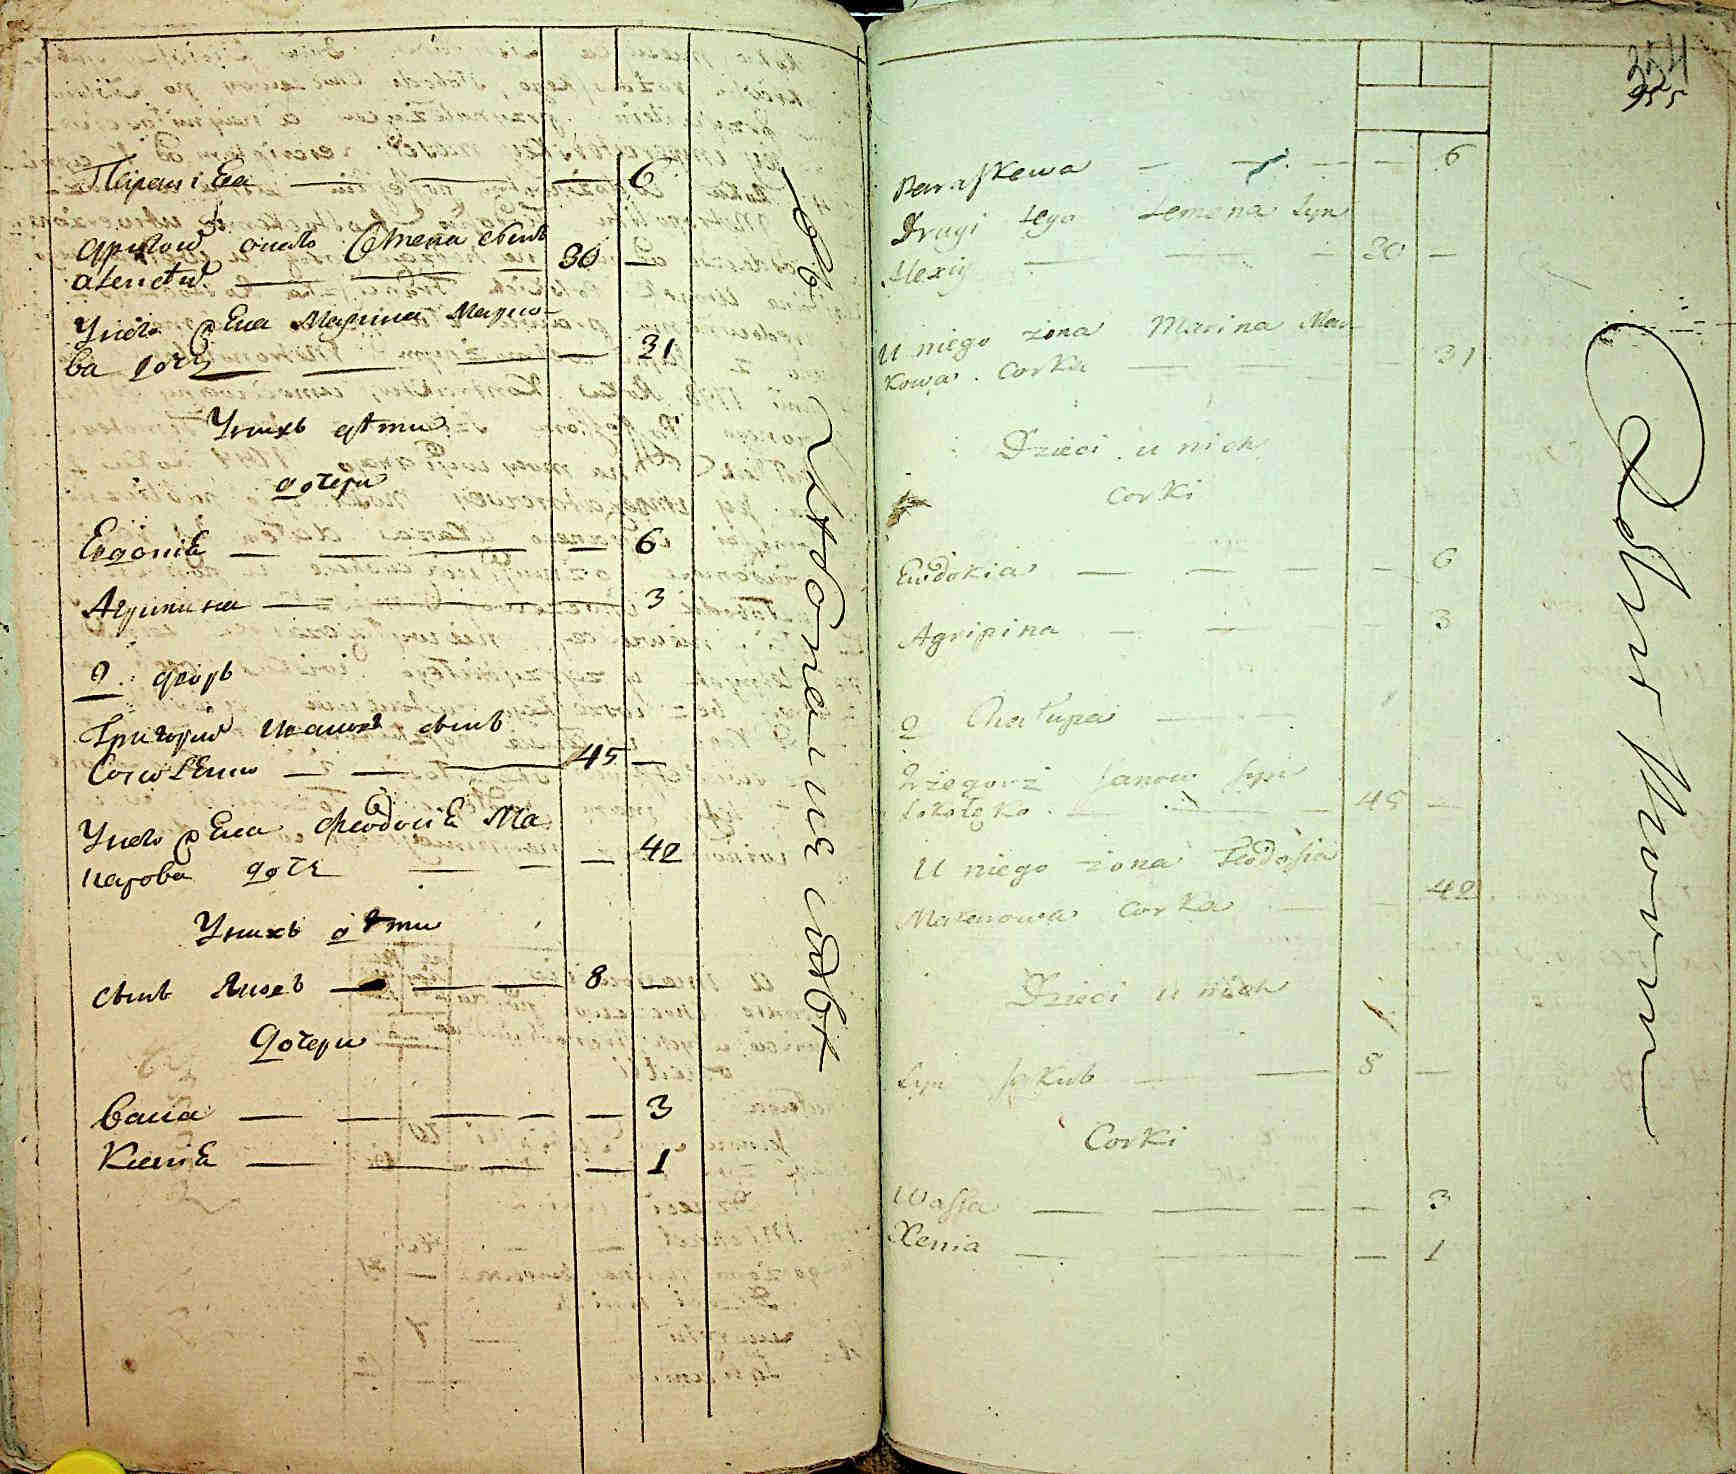 Параскева — — — 6
Другой оного Семена сынъ
Алексій — — 30 —
У него жена Марина Марко-
ва дочь — — — 31
У нихъ дѣти
дочери
Евдокія — — — — 6
Агрипина — — — — 3
2. дворъ
Григорій Ивановъ сынъ
— — 45 —
У него жена Феодосія Ма
карова дочь — — — 42
У нихъ дѣти
сынъ Яковъ — — — 8 —
Дочери
Васса — — — — 3
Ксенія — — — — 1
Paraskewa — — — — 6
Drugi tego Semena Syn
Alexiy — — — 30 —
U niego żona Marina Mar
kowa Corka — — — 31
Dzieci u nich
Corki
Ewdokia — — — — 6
Agripina — — — — 3
2 Chałupa — —
Grzegorz Janow Syn
— — — 45 —
U niego żona Feodosia
Makarowa Corka — — 42
Dzieci u nich
Syn Jakub — — 8 —
Corki
Wassa — — — — 3
Xenia — — — 1
354
355